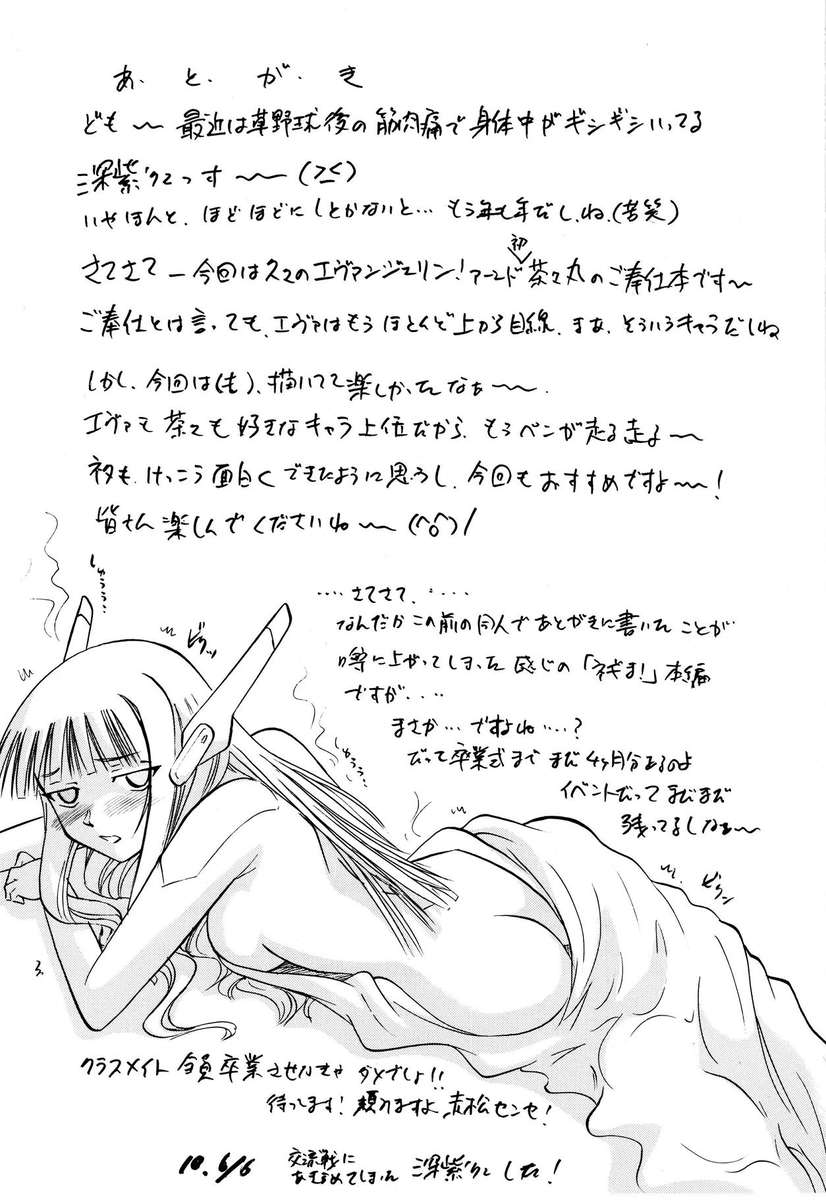 あ・と・が・き
ども〜 最近は草野球後の筋肉痛で身体中がギシギシいってる
深紫でっす〜〜(>_<)
いやほんと、ほどほどにしとかないと… もう年も年だし、ね、(苦笑)
初
さてさてー今回は久々のエヴァンジェリン!アーンド茶々丸のご奉仕本です〜
ご奉仕とは言っても、エヴァはもうほとんど上から目線、まぁ、そういうキャラだしね
しかし、今回は(も)、描いてて楽しかったなぁ〜〜、
エヴァも茶々も好きなキャラ上位だから、もうペンが走る走る〜
ネタも、けっこう面白くできたように思うし、今回もおすすめですよ〜〜!
皆さん楽しんでくださいね〜 (^o^)/
しゅぅぅぅ…
ビクッ
‥‥さてさて、‥‥‥
なんだかこの前の同人であとがきに書いたことが
噂に上がってしまった感じの「ネギま!」本編
ですが‥‥
まさか…ですよね…‥?
だって卒業式までまだ4ヶ月分あるのよ
イベントだってまだまだ
残ってるしなぁ〜
ビクン
クラスメイト全員卒業させなきゃダメでしょ!!
待ってます!頼みますよ赤松センセ!
10.6/6
交流戦に
深紫でした!